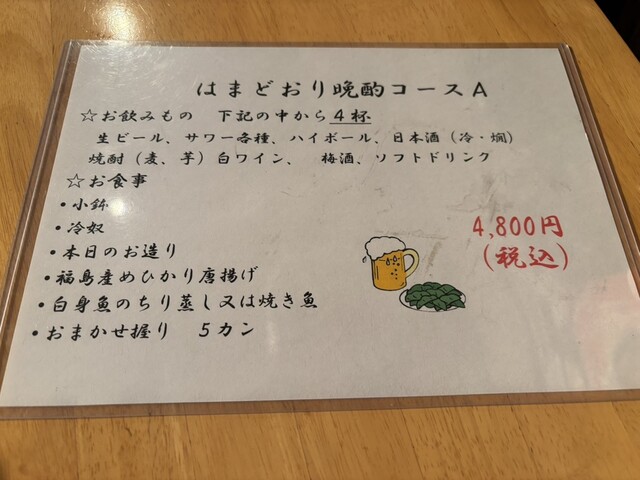 はまどおり晩酌コースA
☆お飲みもの 下記の中から4杯
生ビール、サワー各種、ハイボール、日本酒(冷・燗)
焼酎(麦、芋)白ワイン、 梅酒、ソフトドリンク
☆お食事
・小鉢
・冷奴
・本日のお造り
・福島産めひかり唐揚げ
・白身魚のちり蒸し又は焼き魚
・おまかせ握り 5カン
4,800円
(税込)